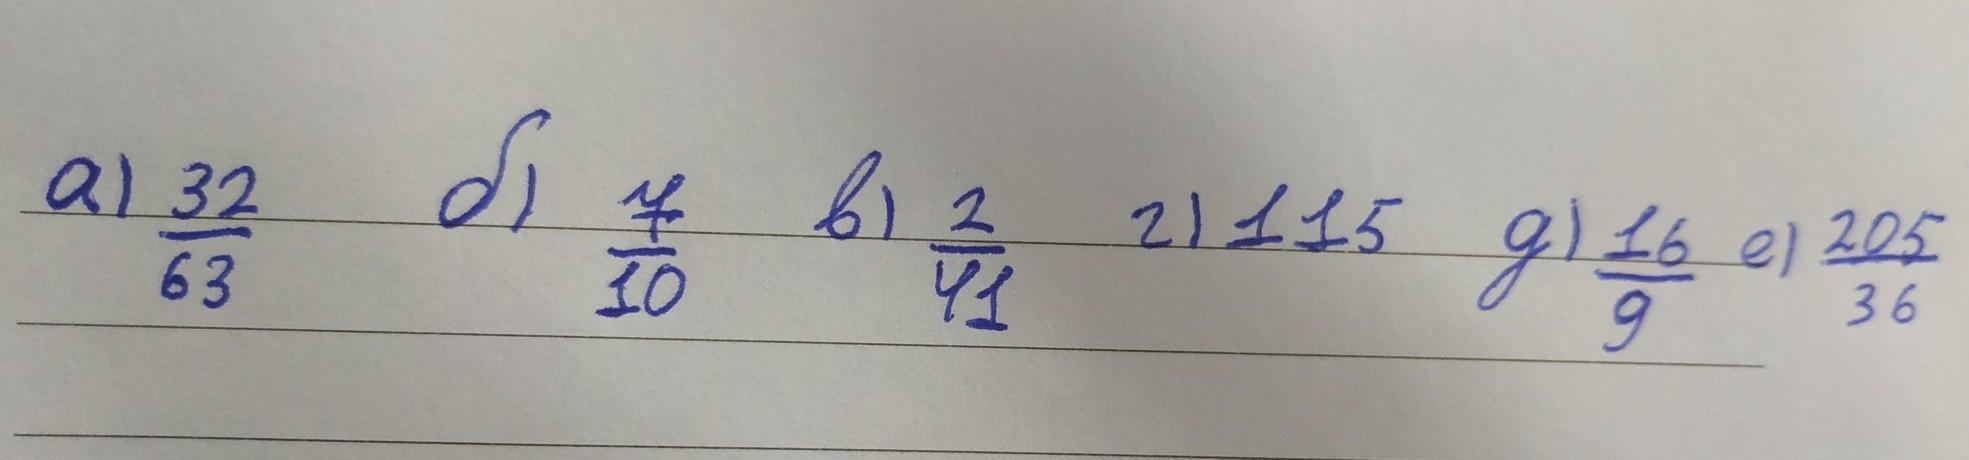 а) 32/63 б) 7/10 в) 2/41 г) 115 д) 16/9 е) 205/36